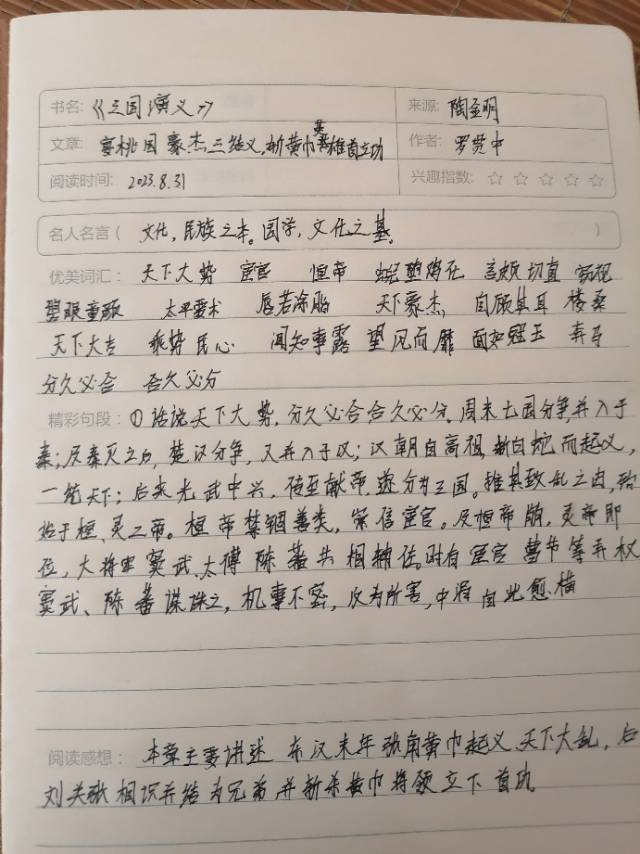 书名: 《三国演义》 来源: 陶至明
文章: 宴桃园豪杰三结义,斩黄巾英雄首立功 作者: 罗贯中
阅读时间: 2023.8.31 兴趣指数: ☆ ☆ ☆ ☆ ☆
名人名言( 文化,民族之本。国学,文化之基。 )
优美词汇: 天下大势 宦官 恒帝 蜺堕鸡化 言颇切直 窃视
碧眼童颜 太平要术 唇若涂脂 天下豪杰, 自顾其耳 楼桑
天下大吉 乘势 民心 闻知事露 望风而靡 面如冠玉 弃身
分久必合 合久必分
精彩句段: ①话说天下大势,分久必合合久必分。周末七国分争,并入于
秦;及秦灭之后,楚汉分争,又并入于汉;汉朝自高祖,斩白蛇而起义,
一统天下;后来光武中兴,传至献帝,遂分为三国。推其致乱之由,殆
始于桓、灵二帝。桓帝禁锢善类,崇信宦官。及桓帝崩,灵帝即
位,大将军窦武、太傅陈蕃共相辅佐。时有宦官曹节等弄权
窦武、陈蕃谋诛之,机事不密,反为所害,中涓自此愈横
阅读感想: 本章主要讲述 东汉末年张角黄巾起义,天下大乱,后
刘关张相识并结为兄弟,并斩杀黄巾将领立下首功。